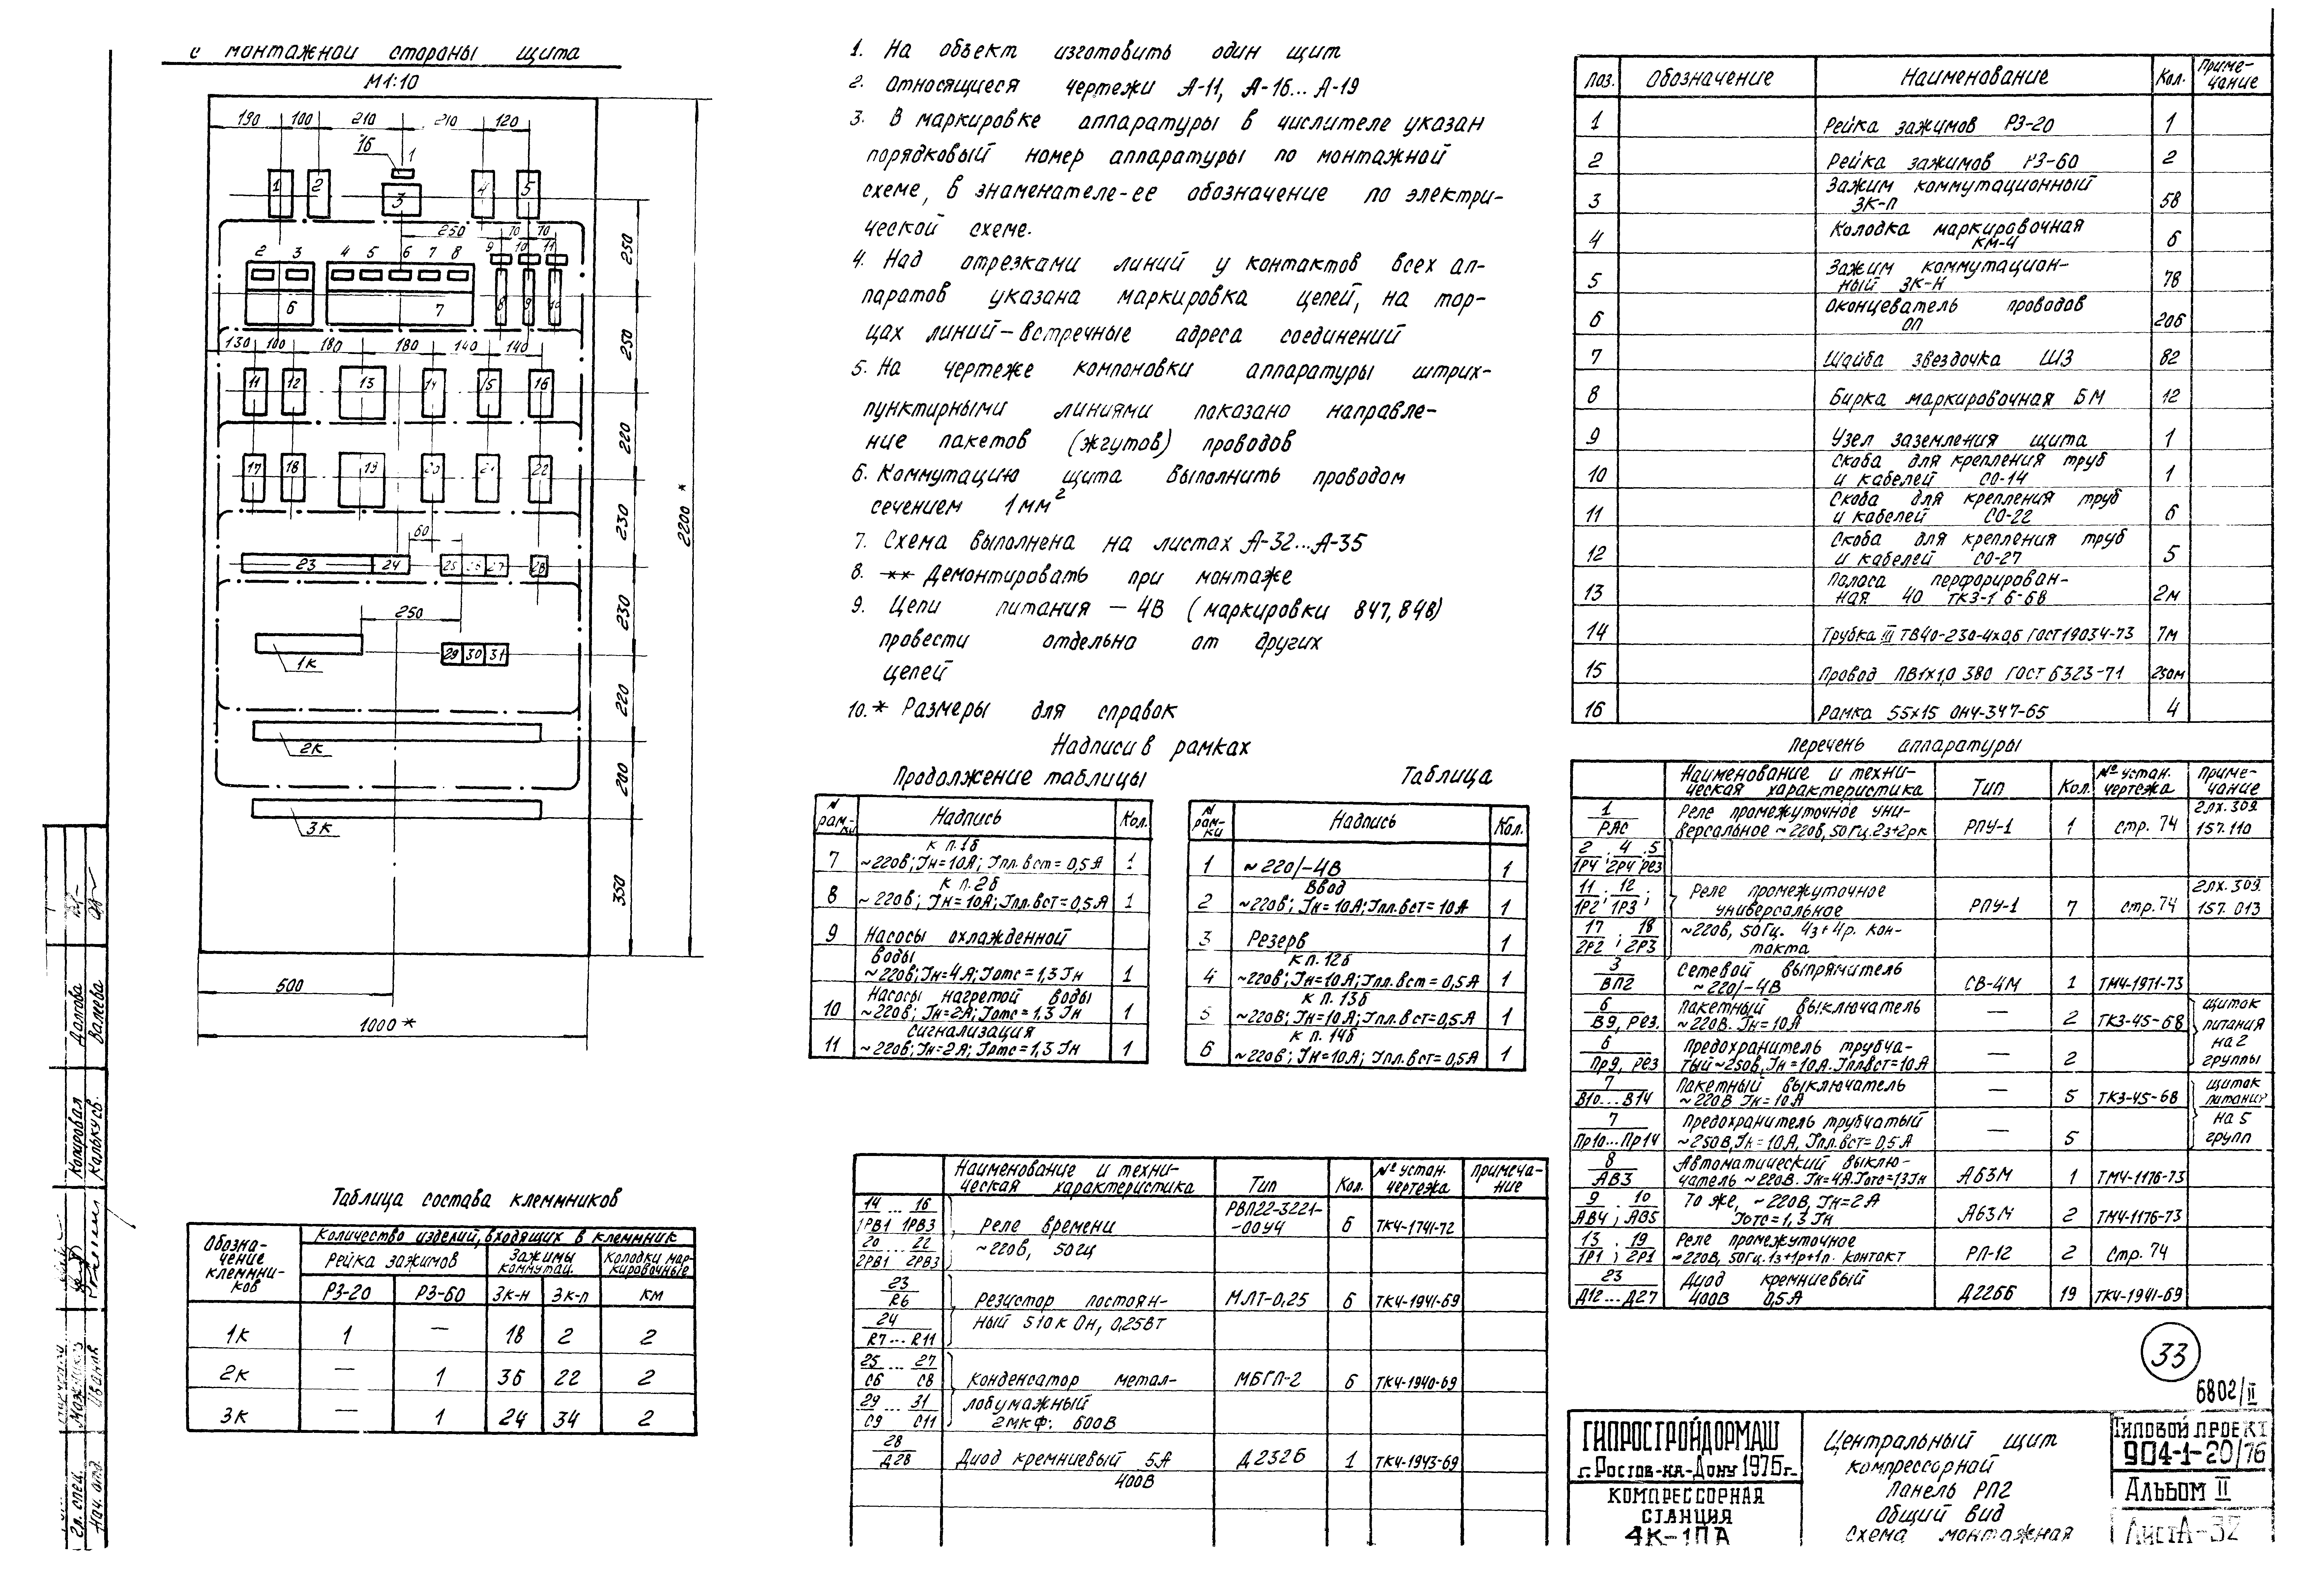 с монтажной стороны щита
М1:10
190 100 210 210 120
16 1
1 2 3 4 5
250 70 70
2 3 4 5 6 7 8 9 10 11
6 7 8 9 10
130 100 180 180 140 140
11 12 13 14 15 16
17 18 19 20 21 22
60
23 24 25 26 27 28
250
1К 29 30 31
2К
3К
250
250
220
230
230
220
200
350
2200 *
500
1000 *
Таблица состава клеммников
Обозна-чение клеммни-ков | Количество изделий, входящих в клеммник
Рейка зажимов | Зажимы коммутац. | Колодки мар-кировочные
РЗ-20 | РЗ-60 | ЗК-Н | ЗК-П | КМ
1К | 1 | — | 18 | 2 | 2
2К | — | 1 | 36 | 22 | 2
3К | — | 1 | 24 | 34 | 2
1. На объект изготовить один щит
2. Относящиеся чертежи А-11, А-16... А-19
3. В маркировке аппаратуры в числителе указан
порядковый номер аппаратуры по монтажной
схеме, в знаменателе-ее обозначение по электри-
ческой схеме.
4. Над отрезками линий у контактов всех ап-
паратов указана маркировка цепей, на тор-
цах линий-встречные адреса соединений
5. На чертеже компоновки аппаратуры штрих-
пунктирными линиями показано направле-
ние пакетов (жгутов) проводов
6. Коммутацию щита выполнить проводом
сечением 1мм²
7. Схема выполнена на листах А-32...А-35
8. ** Демонтировать при монтаже
9. Цепи питания — 4В (маркировки 847, 848)
провести отдельно от других
цепей
10.* Размеры для справок
Надписи в рамках
Продолжение таблицы
N рам-ки | Надпись | Кол.
7 | к п.1б ~220в; Iн=10А; Iпл.вст=0,5А | 1
8 | к п.2б ~220в; Iн=10А; Iпл.вст=0,5А | 1
9 | Насосы охлажденной
воды
~220в; Iн=4А; Iотс=1,3Iн | 1
10 | Насосы нагретой воды ~220в; Iн=2А; Iотс=1,3Iн | 1
11 | Сигнализация ~220в; Iн=2А; Iотс=1,3Iн | 1
Таблица
N рам-ки | Надпись | Кол.
1 | ~220/-4В | 1
2 | Ввод ~220в; Iн=10А; Iпл.вст=10А | 1
3 | Резерв | 1
4 | к п.12б ~220в; Iн=10А; Iпл.вст=0,5А | 1
5 | к п.13б ~220в; Iн=10А; Iпл.вст=0,5А | 1
6 | к п.14б ~220в; Iн=10А; Iпл.вст=0,5А | 1
Наименование и техни-ческая характеристика | Тип | Кол. | № устан. чертежа | Примеча-ние
14 ... 16 / 1РВ1 1РВ3, 20 ... 22 / 2РВ1 2РВ3 | Реле времени ~220в, 50гц | РВП22-3221-00У4 | 6 | ТК4-1741-72
23 / R6, 24 / R7...R11 | Резистор постоян-ный 510к Он, 0,25Вт | МЛТ-0,25 | 6 | ТК4-1941-69
25 ... 27 / С6 С8, 29 ... 31 / С9 С11 | Конденсатор метал-лобумажный 2мкф. 600В | МБГП-2 | 6 | ТК4-1940-69
28 / Д28 | Диод кремниевый 5А 400В | Д232Б | 1 | ТК4-1943-69
Поз. | Обозначение | Наименование | Кол. | Приме-чание
1 | Рейка зажимов РЗ-20 | 1
2 | Рейка зажимов РЗ-60 | 2
3 | Зажим коммутационный ЗК-П | 58
4 | Колодка маркировочная КМ-4 | 6
5 | Зажим коммутацион-ный ЗК-Н | 78
6 | Оконцеватель проводов ОП | 206
7 | Шайба звездочка ШЗ | 82
8 | Бирка маркировочная БМ | 12
9 | Узел заземления щита | 1
10 | Скоба для крепления труб и кабелей СО-14 | 1
11 | Скоба для крепления труб и кабелей СО-22 | 6
12 | Скоба для крепления труб и кабелей СО-27 | 5
13 | Полоса перфорирован-ная 40 ТКЗ-1 6-68 | 2м
14 | Трубка III ТВ40-230-4х0,6 ГОСТ19034-73 | 7м
15 | Провод ПВ1х1,0 380 ГОСТ 6323-71 | 250м
16 | Рамка 55х15 ОН4-347-65 | 4
Перечень аппаратуры
Наименование и техни-ческая характеристика | Тип | Кол. | № устан. чертежа | Приме-чание
1 / РАС | Реле промежуточное уни-версальное ~220в, 50Гц.2з+2рк | РПУ-1 | 1 | стр. 74 | 2лх.309.157.110
2 . 4 . 5 / 1Р4 ; 2Р4 ; рез
11 . 12 / 1Р2 ; 1Р3 ; 17 18 / 2Р2 ; 2Р3 | Реле промежуточное универсальное ~220в, 50Гц. 4з+4р. кон-такта | РПУ-1 | 7 | стр.74 | 2лх.309.157.013
3 / ВП2 | Сетевой выпрямитель ~220/-4В | СВ-4М | 1 | ТМ4-1971-73
6 / В9, Рез. | Пакетный выключатель ~220в. Iн=10А | — | 2 | ТКЗ-45-68 | щиток питания на 2 группы
6 / Пр9, рез | Предохранитель трубча-тый ~250в, Iн=10А. Iпл.вст=10А | — | 2
7 / В10...В14 | Пакетный выключатель ~220В Iн=10А | — | 5 | ТКЗ-45-68 | щиток питания на 5 групп
7 / Пр10...Пр14 | Предохранитель трубчатый ~250В, Iн=10А, Iпл.вст=0,5А | — | 5
8 / АВ3 | Автоматический выклю-чатель ~220в. Iн=4А. Iотс=1,3Iн | А63М | 1 | ТМ4-1176-73
9 . 10 / АВ4 ; АВ5 | То же, ~220В, Iн=2А Iотс=1,3Iн | А63М | 2 | ТМ4-1176-73
13 . 19 / 1Р1 ; 2Р1 | Реле промежуточное ~220в, 50Гц.1з+1р+1п. контакт | РП-12 | 2 | Стр. 74
23 / Д12...Д27 | Диод кремниевый 400В 0,5А | Д226Б | 19 | ТК4-1941-69
33
6802/II
ГИПРОСТРОЙДОРМАШ
г. Ростов-на-Дону 1976г.
КОМПРЕССОРНАЯ
СТАНЦИЯ
4К-1ПА
Центральный щит
компрессорной
Панель РП2
Общий вид
Схема монтажная
Типовой проект
904-1-20/76
Альбом II
Лист А-32
Копировал Долгова
Калькусв. Валеева
Гл. спец.
Нач. отд. Иванов